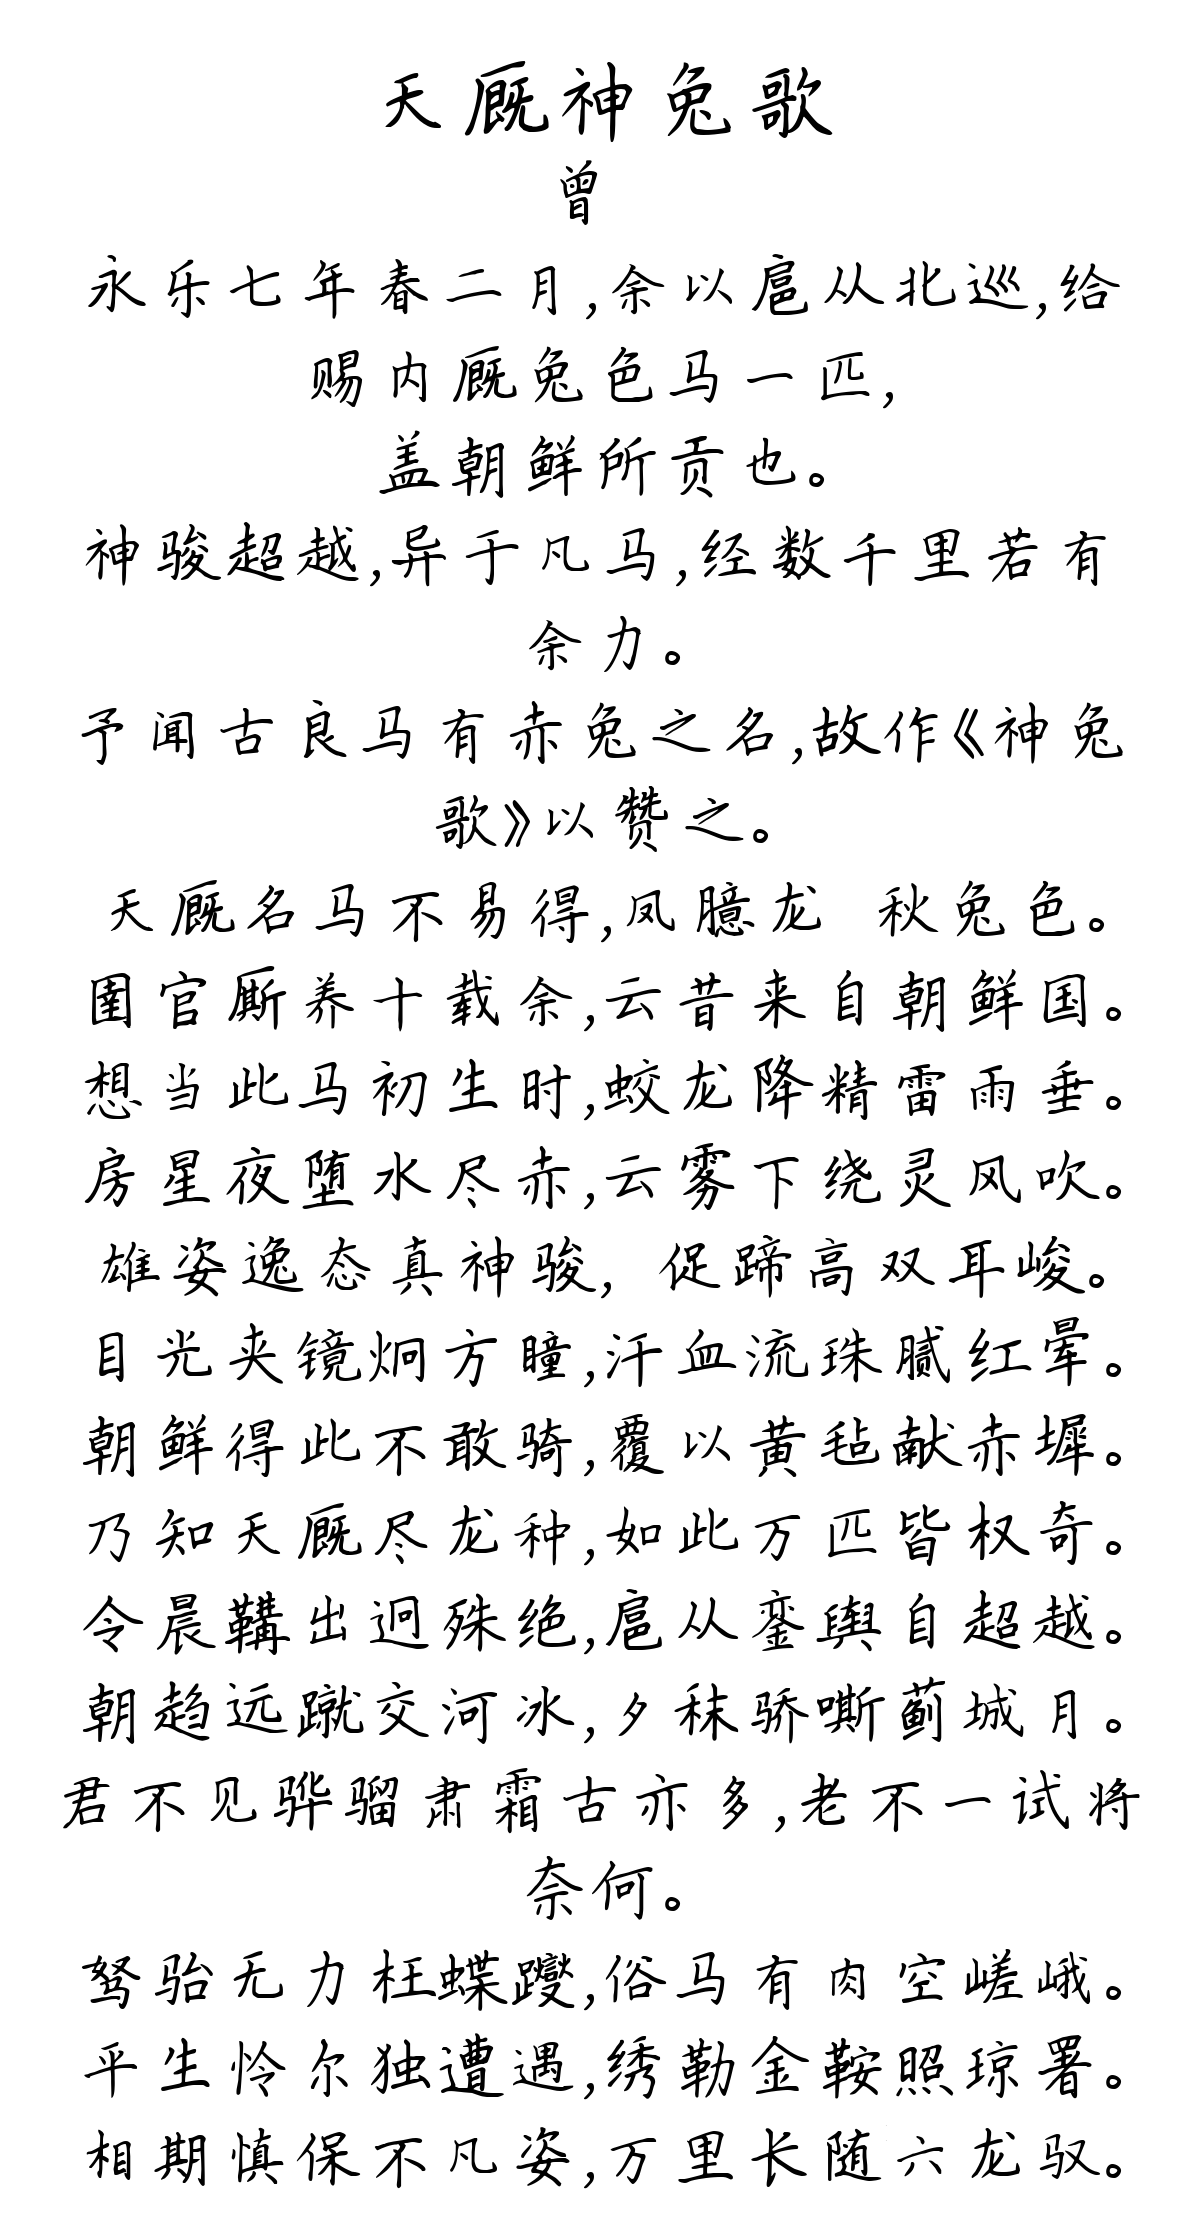 天厩神兔歌
曾
永乐七年春二月,余以扈从北巡,给
赐内厩兔色马一匹,
盖朝鲜所贡也。
神骏超越,异于凡马,经数千里若有
余力。
予闻古良马有赤兔之名,故作《神兔
歌》以赞之。
天厩名马不易得,凤臆龙 秋兔色。
圉官厮养十载余,云昔来自朝鲜国。
想当此马初生时,蛟龙降精雷雨垂。
房星夜堕水尽赤,云雾下绕灵风吹。
雄姿逸态真神骏, 促蹄高双耳峻。
目光夹镜炯方瞳,汗血流珠腻红晕。
朝鲜得此不敢骑,覆以黄毡献赤墀。
乃知天厩尽龙种,如此万匹皆权奇。
令晨鞲出迥殊绝,扈从銮舆自超越。
朝趋远蹴交河冰,夕秣骄嘶蓟城月。
君不见骅骝肃霜古亦多,老不一试将
奈何。
驽骀无力枉蝶躞,俗马有肉空嵯峨。
平生怜尔独遭遇,绣勒金鞍照琼署。
相期慎保不凡姿,万里长随六龙驭。